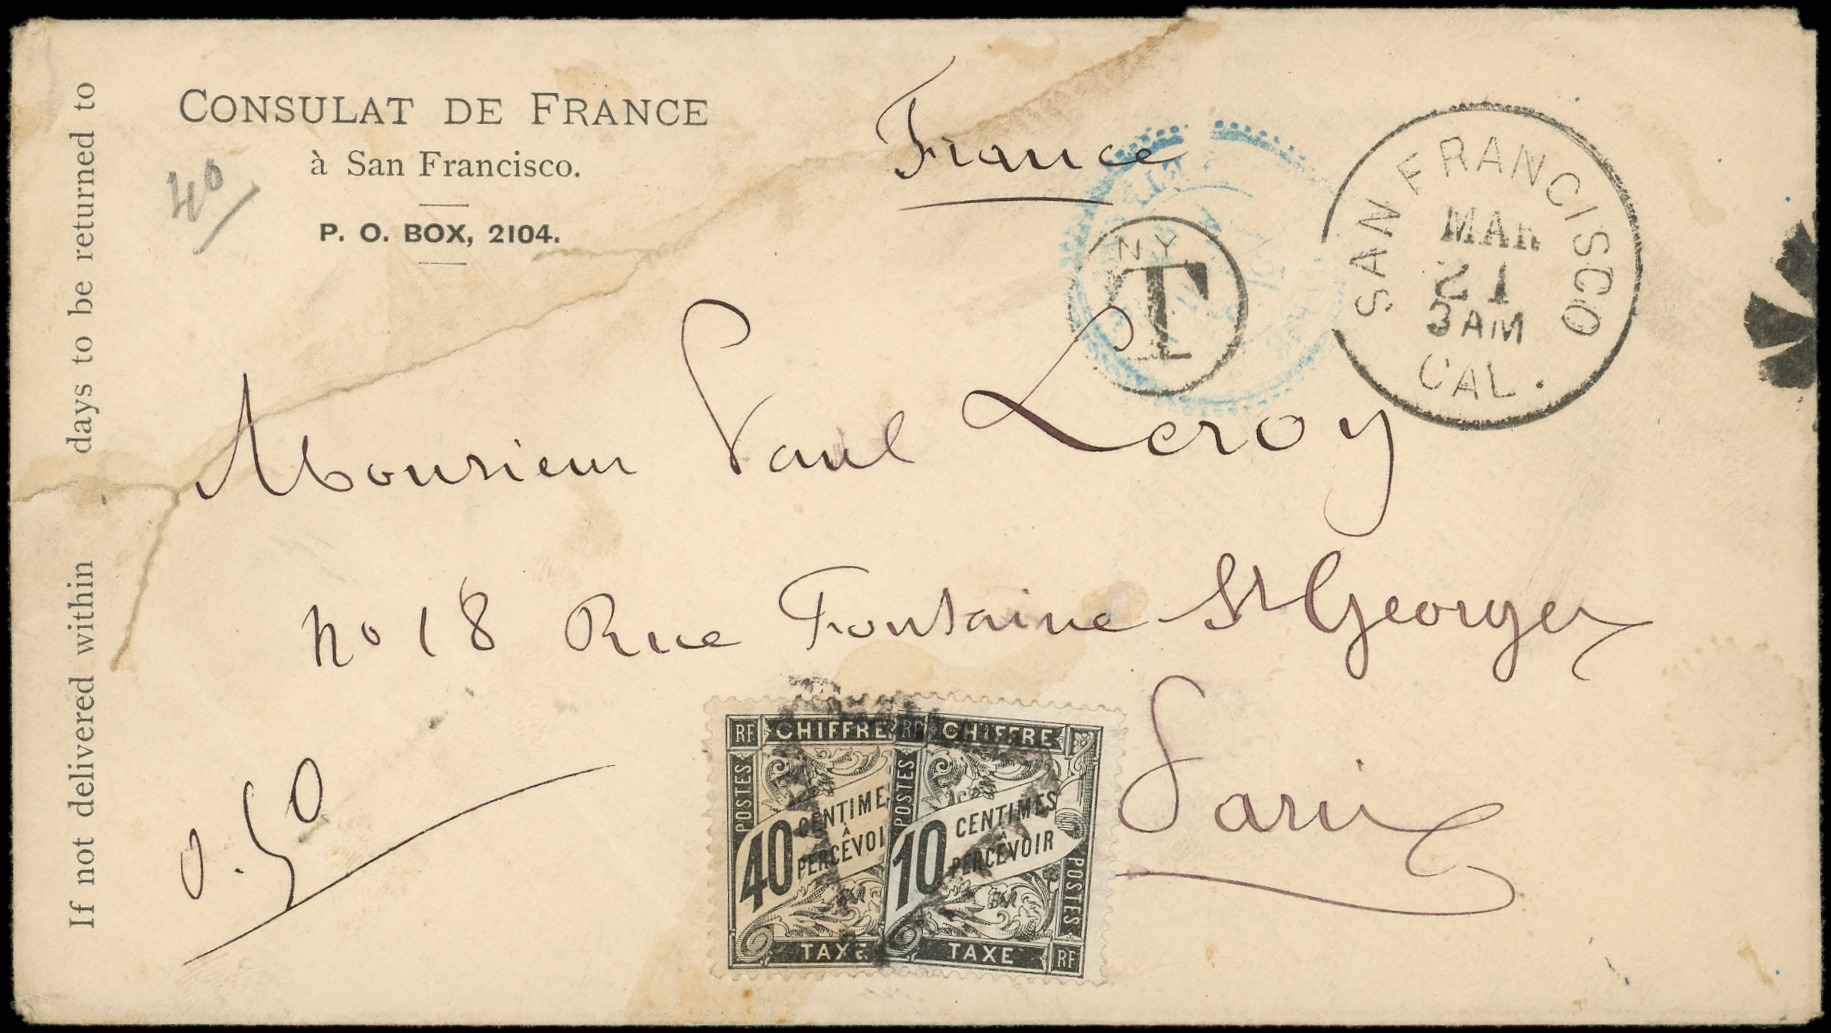 CONSULAT DE FRANCE
à San Francisco.
P. O. BOX, 2104.
40
If not delivered within days to be returned to
France
N.Y.
T
SAN FRANCISCO
MAR
21
3 AM
CAL.
Monsieur Paul Leroy
no 18 Rue Fontaine St Georges
Paris
0.50
RF CHIFFRE
POSTES
40 CENTIME
À
PERCEVOI
TAXE
RF CHIFFRE
POSTES
10 CENTIMES
À
PERCEVOIR
POSTES
TAXE RF